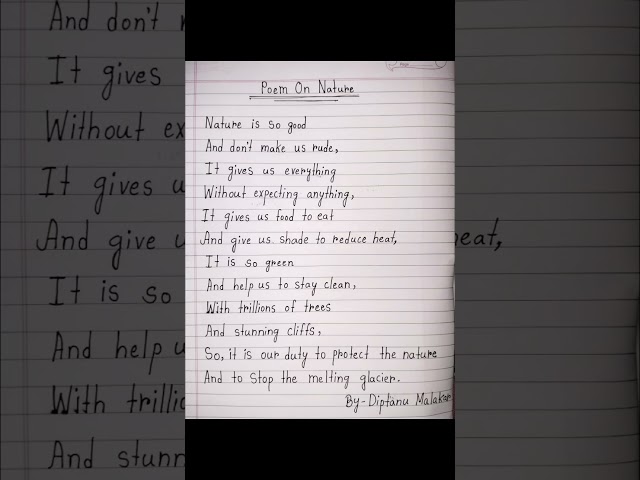 Poem On Nature
Nature is so good
And don't make us rude,
It gives us everything
Without expecting anything,
It gives us food to eat
And give us shade to reduce heat,
It is so green
And help us to stay clean,
With trillions of trees
And stunning cliffs,
So, it is our duty to protect the nature
And to stop the melting glacier.
By-Diptanu Malakar